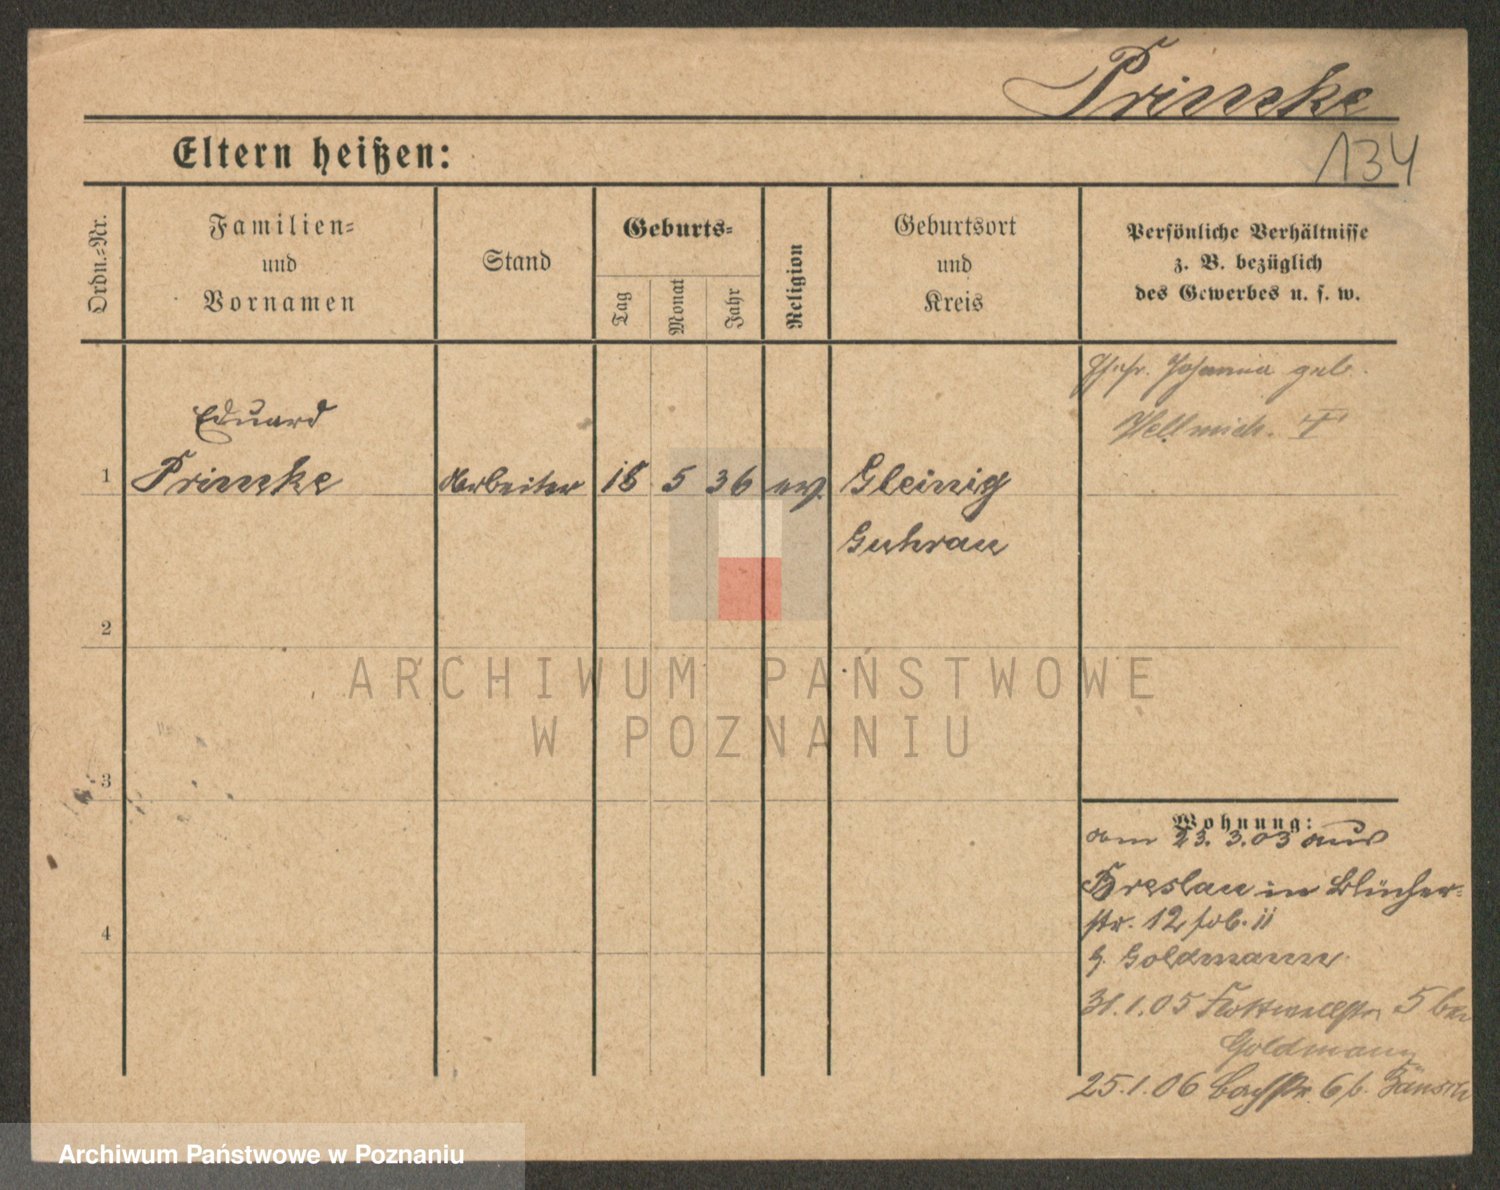 Primke
134
Eltern heißen:
Ordn.-Nr.
Familien-
und
Vornamen
Stand
Geburts-
Tag
Monat
Jahr
Religion
Geburtsort
und
Kreis
Persönliche Verhältnisse
z. B. bezüglich
des Gewerbes u. s. w.
Ehefr. Johanna geb.
Hellmich. †
Eduard
1 Primke Arbeiter 18 5 36 ev. Gleinig
Guhrau
2
3
4
Wohnung:
am 23. 3. 03 aus
Breslau in Blücher-
str. 12 II
b. Goldmann
31.1.05 Flottwellstr. 5 bei
Goldmann
25.1.06 Bachstr. 6 b.
ARCHIWUM PAŃSTWOWE
W POZNANIU
Archiwum Państwowe w Poznaniu